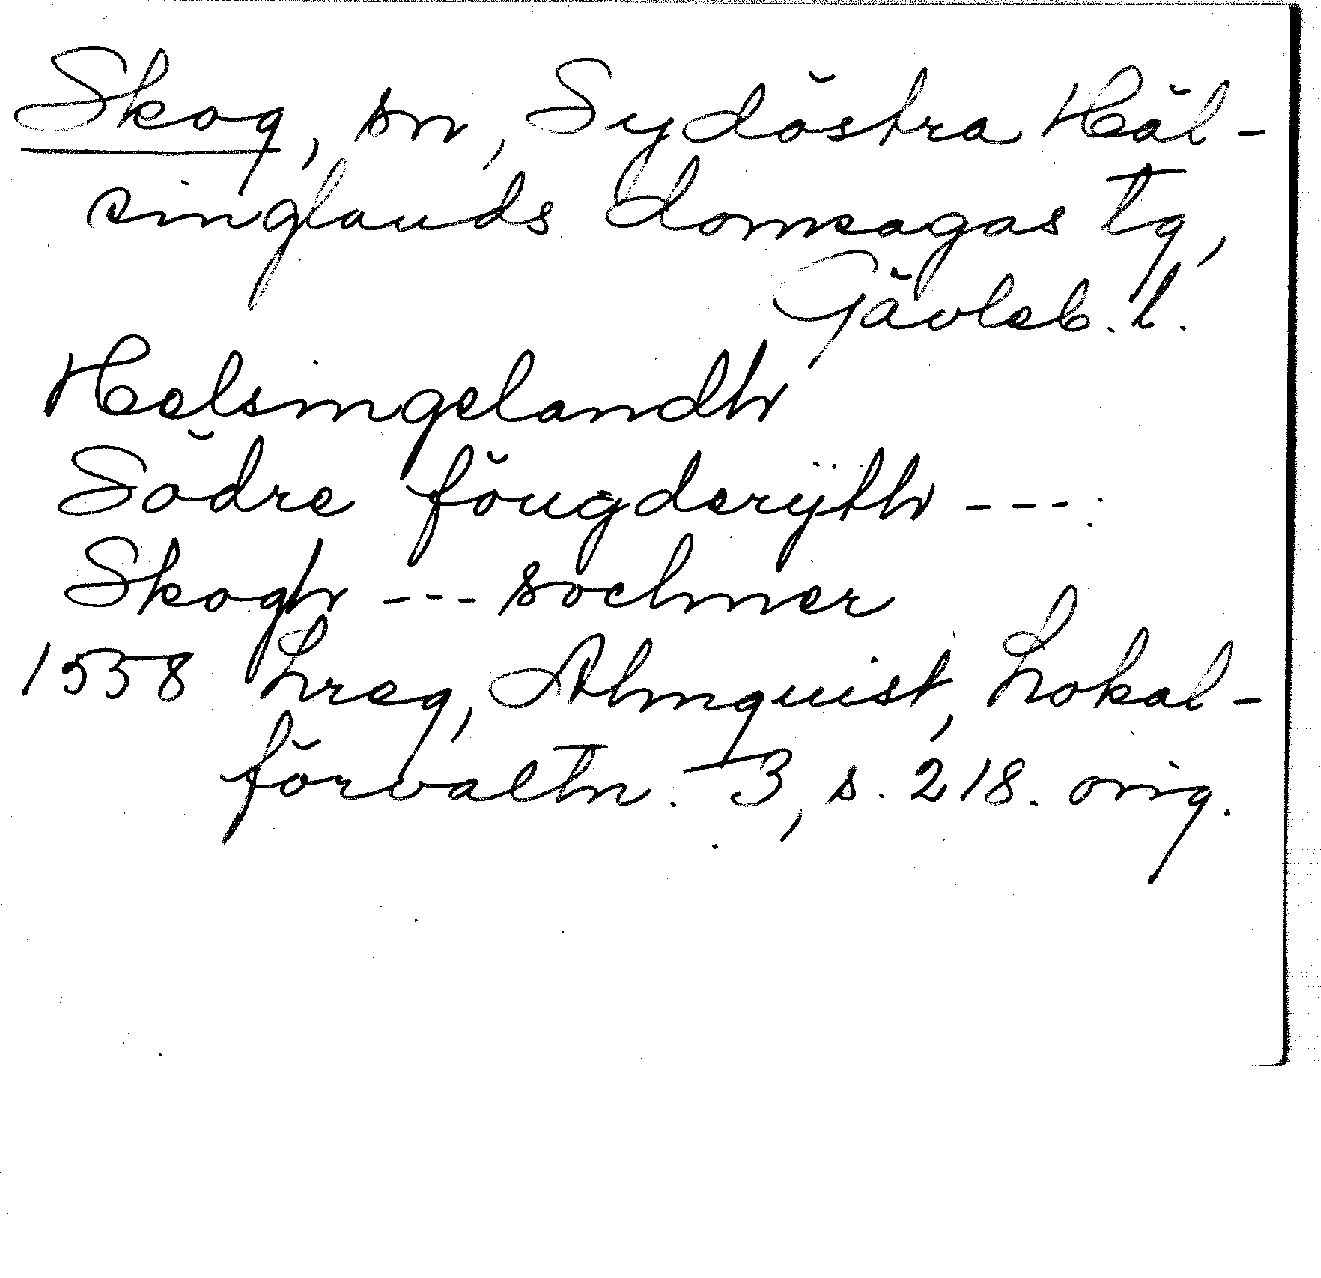 Skog, sn, Sydöstra Häl-
singlands domsagas tg,
Gävleb. l.
Helsingelandh
Södre föugderÿth ---
Skogh --- sochner
1558 Lreg, Almquist, Lokal-
förvaltn. 3, s. 218. orig.